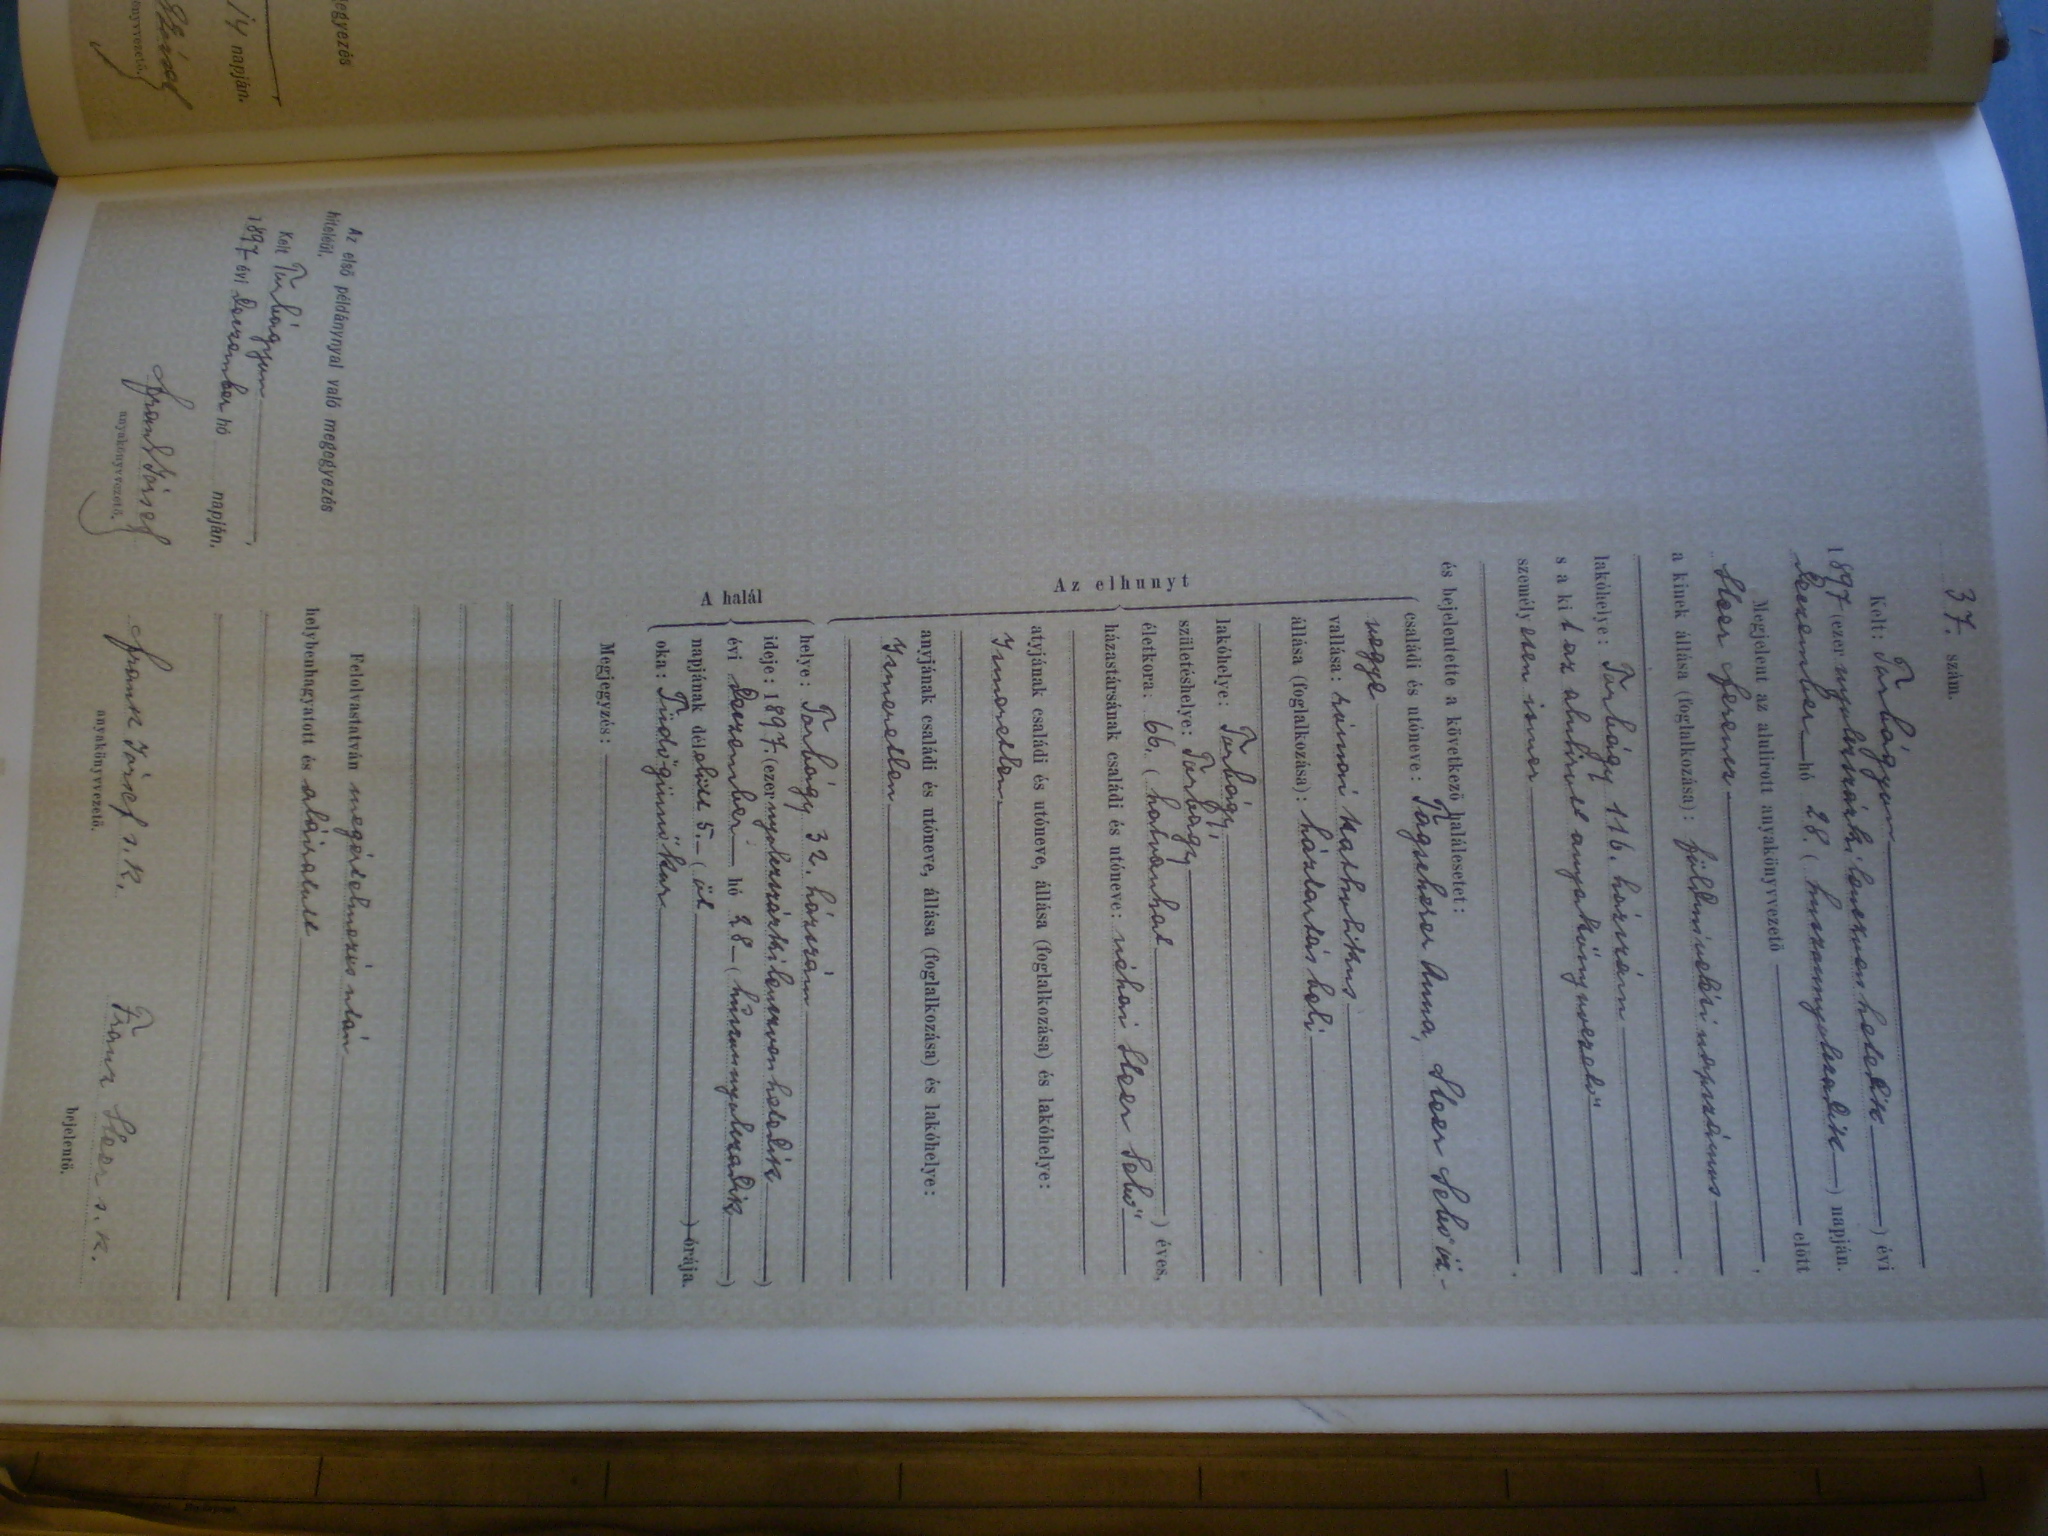 37. szám.
Kelt: Torbágyon évi
1897 (ezer nyolcszázkilencvenhetedik
deczember hó 28. (huszonnyolczadik) napján.
Megjelent az alulirott anyakönyvvezető előtt
Stoer Ferencz,
a kinek állása (foglalkozása): földmívelési napszámos
lakóhelye: Torbágy 116. házszám,
s a kit az alulírt anyakönyvvezető
személyesen ismer.
és bejelentette a következő halálesetet:
Az elhunyt
családi és utóneve: Anna, Stoer Sebő öz-
vegye
vallása: római katholikus
állása (foglalkozása): háztartásbeli
lakóhelye: Torbágy
születéshelye: Torbágy
életkora: 66. (hatvanhat) éves,
házastársának családi és utóneve: néhai Stoer Sebő
atyjának családi és utóneve, állása (foglalkozása) és lakóhelye:
Ismeretlen
anyjának családi és utóneve, állása (foglalkozása) és lakóhelye:
Ismeretlen
A halál
helye: Torbágy 32. házszám
ideje: 1897. (ezer nyolczszázkilenczvenhetedik)
évi deczember hó 28 (huszonnyolczadik)
napjának délelőtt 5. (öt) órája.
oka: Tüdőgümőkór
Megjegyzés:
Felolvastatván megértelmezés után
helybenhagyatott és aláíratott
Frank József s. k.
anyakönyvvezető.
Franz Stoer s. k.
bejelentő.
Az első példánynyal való megegyezés
hiteléül.
Kelt Torbágyon,
1897 évi deczember hó napján.
Frank József
anyakönyvvezető.
egyezés
14 napján.
önyvvezető.